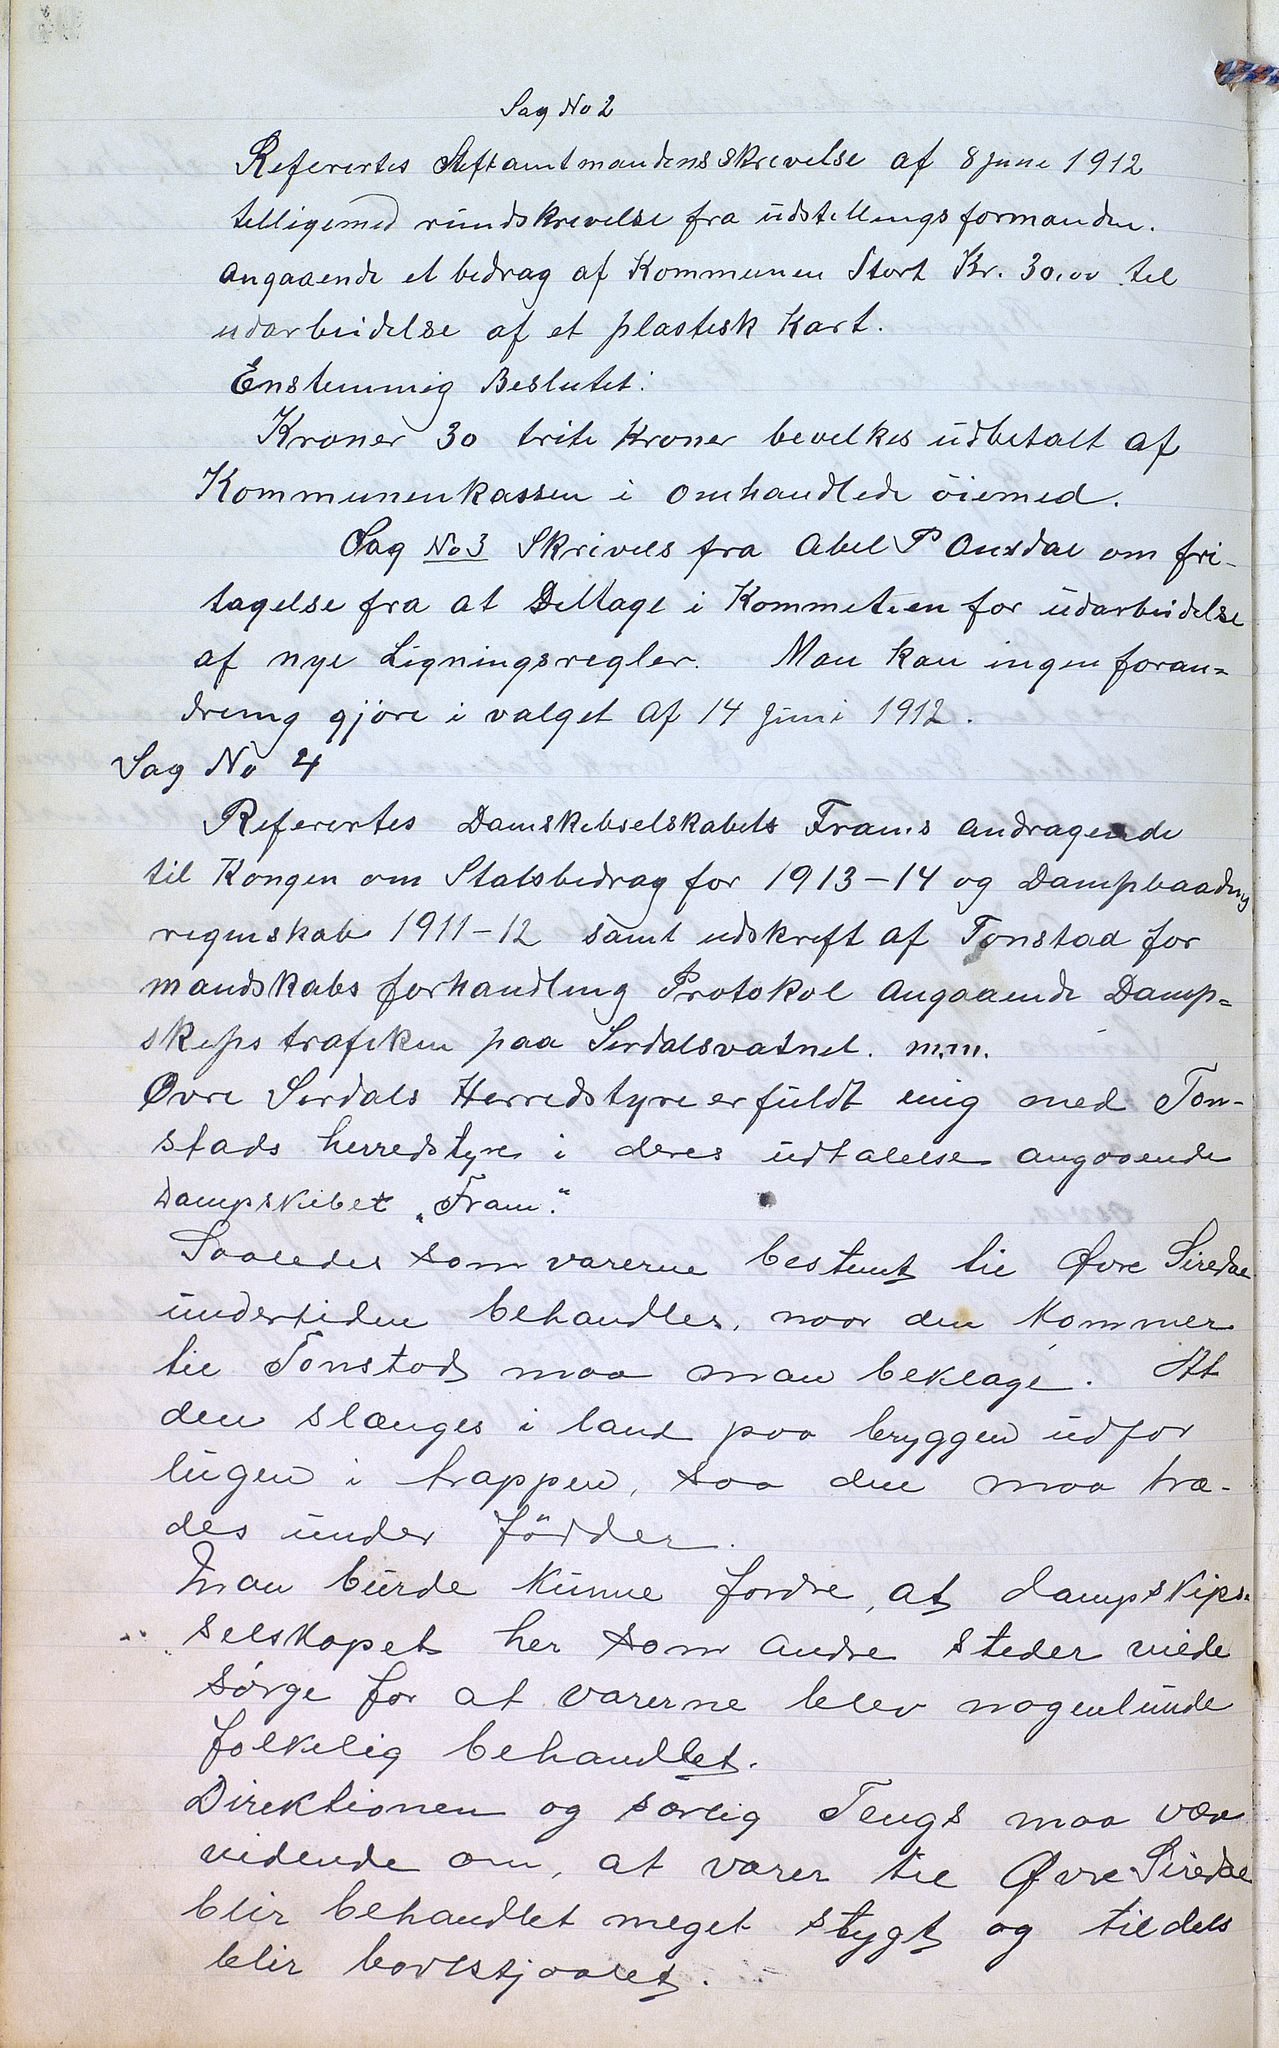 Sag No 2
Referertes Stiftamtmandens skrivelse af 8 juni 1912
telligemed rundskrivelse fra udstillingsformanden.
angaaende et bedrag af Kommunen Stort Kr. 30,00 til
udarbeidelse af et plastisk Kart.
Enstemmig Beslutet:
Kroner 30 triti Kroner bevilkes udbetalt af
Kommunenkassen i omhandlede øiemed.
Sag No 3 Skrivels fra Abel P Ousdal om fri-
tagelse fra at Deltage i Kommeteen for udarbeidelse
af nye Ligningsregler. Man kan ingen foran=
dring gjøre i valget af 14 juni 1912.
Sag No 4
Referertes Damskibselskabets Frams andragende
til Kongen om Statsbedrag for 1913-14 og Dampbaadens
regnskab 1911-12 samt udskrift af Tonstad for
mandskabs forhandling Protokol angaaende Damp=
skips trafiken paa Sirdalsvatnet. m.m.
Øvre Sirdals Herredstyre er fuldt enig med Ton-
stads herredstyre i deres udtalelse angaaende
Dampskibet „Fram".
Saaledes som varerne bestemt til Øvre Siredal
undertiden behandles, naar den kommer
til Tonstad maa man beklage. At
den slænges i land paa bryggen udfor
lugen i trappen, saa den maa træ-
des under fødder.
Man burde kunne fordre, at dampskips-
selskapet her som andre steder vilde
sørge for at varerne blev nogenlunde
folkelig behandlet.
Direktionen og særlig Tengs maa være
vidende om, at varer til Øvre Siredal
blir behandlet meget stygt og tildels
blir bortstjaalet.